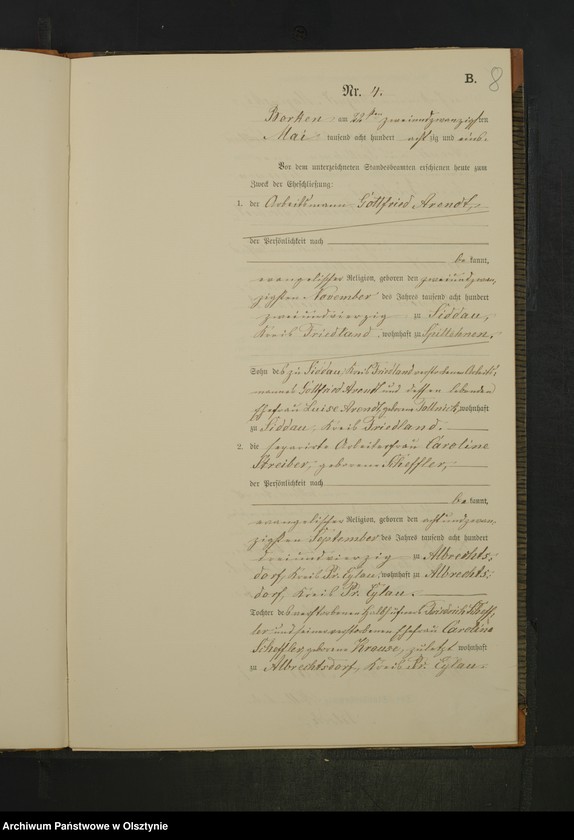 B. 8
Nr. 4.
Borken am 22ten zweiundzwanzigsten
Mai tausend acht hundert achtzig und eins.
Vor dem unterzeichneten Standesbeamten erschienen heute zum
Zweck der Eheschließung:
1. der Arbeitsmann Gottfried Arendt,
der Persönlichkeit nach
bekannt,
evangelischer Religion, geboren den zweiundzwan-
zigsten November des Jahres tausend acht hundert
zweiundvierzig zu Siddau,
Kreis Friedland, wohnhaft zu
Sohn des zu Siddau, Kreis Friedland verstorbenen Arbeits-
mannes Gottfried Arendt und dessen lebenden
Ehefrau Luise Arendt, geborene wohnhaft
zu Siddau, Kreis Friedland.
2. die separirte Arbeiterfrau Caroline
Streiber, geborene Scheffler,
der Persönlichkeit nach
bekannt,
evangelischer Religion, geboren den achtundzwan-
zigsten September des Jahres tausend acht hundert
dreiundvierzig zu Albrechts-
dorf, Kreis Pr. Eylau, wohnhaft zu Albrechts-
dorf, Kreis Pr. Eylau.
Tochter des verstorbenen Friedrich Scheff-
ler und seiner verstorbenen Ehefrau Caroline
Scheffler, geborene Krause, zuletzt wohnhaft
zu Albrechtsdorf, Kreis Pr. Eylau.
Archiwum Państwowe w Olsztynie